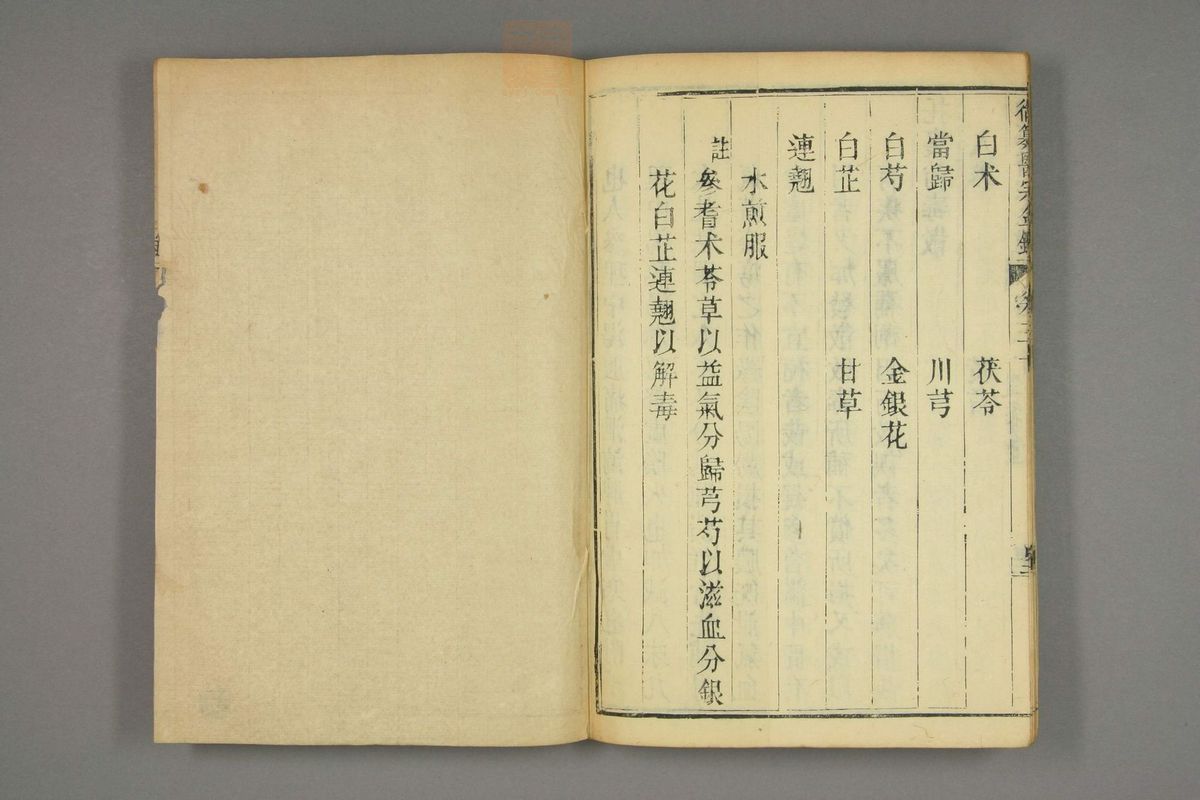 御纂醫宗金鑑
白术　茯苓
當歸　川芎
白芍　金銀花
白芷　甘草
連翹
水煎服
註
參耆术苓草以益氣分歸芎芍以滋血分銀
花白芷連翹以解毒